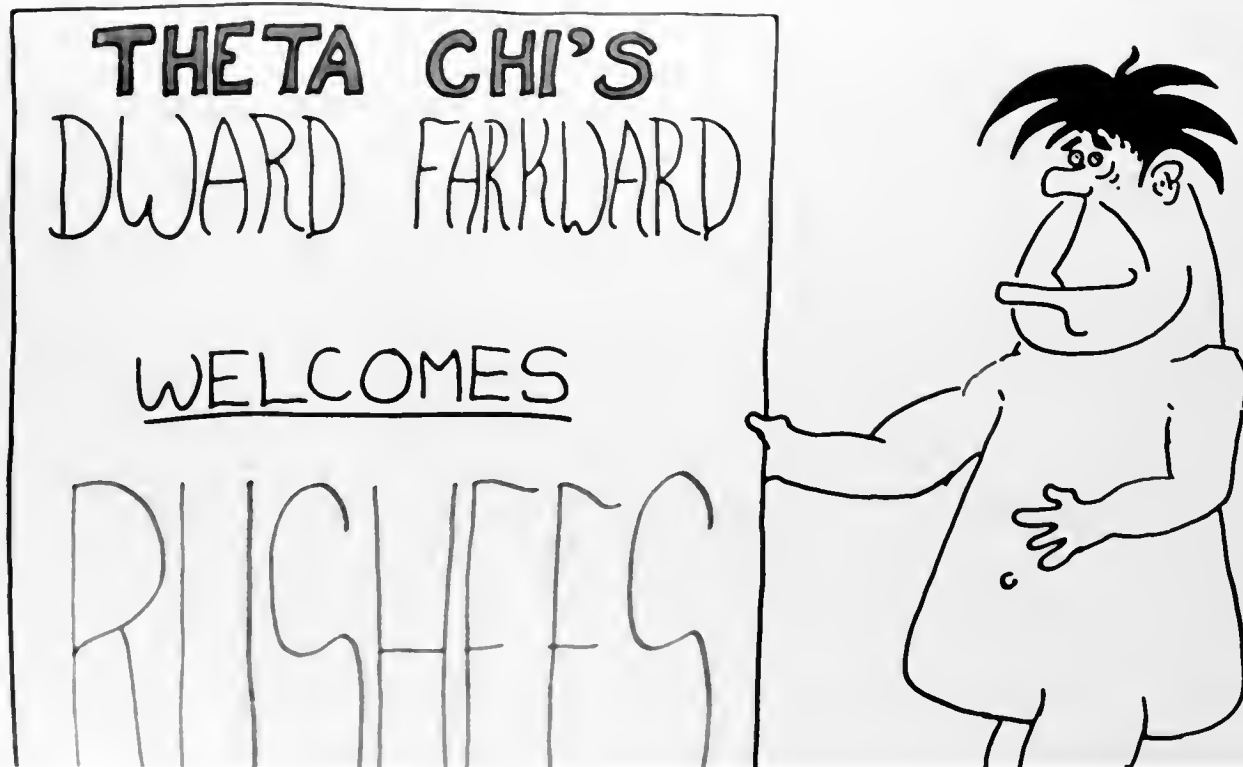 THETA CHI'S
DWARD FARKWARD
WELCOMES
RUSHEES